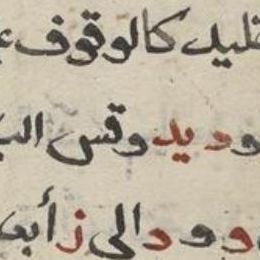 قليل كالوقوف ع
و د يد وقس الب
د و د الى ز أبعا